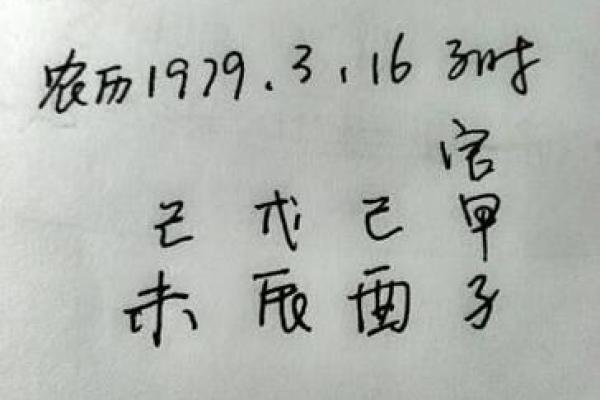 农历1979.3.16 子时
官
己 戊 己 甲
未 辰 酉 子